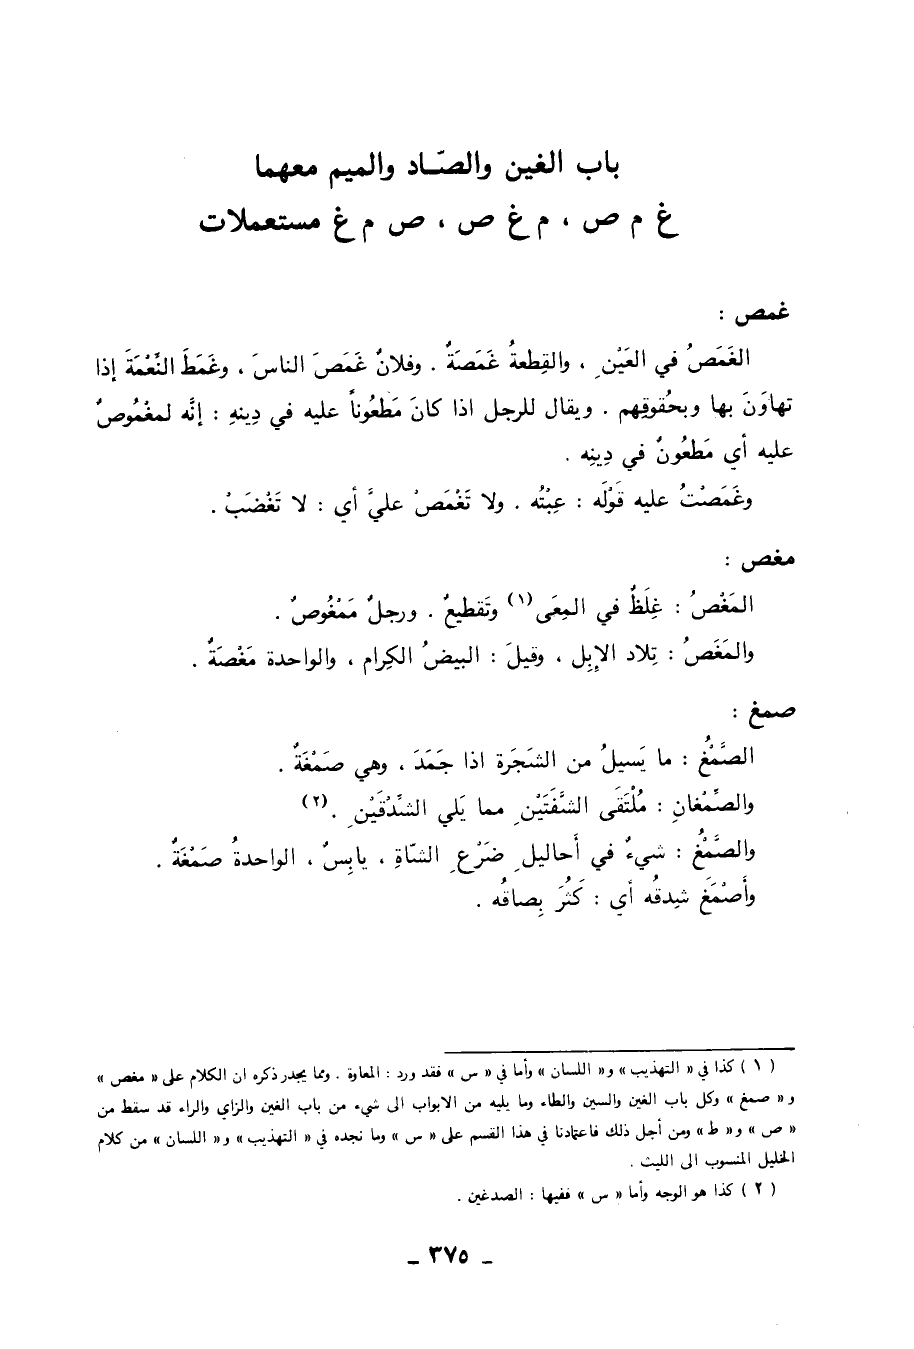 باب الغين والصّاد والميم معهما
غ م ص ، م غ ص ، ص م غ مستعملات
غمص :
الغَمَصُ في العَيْنِ ، والقِطعةُ غَمَصَةٌ . وفلانٌ غَمَصَ الناسَ ، وغَمَطَ النَّعْمَةَ إذا
تهاوَنَ بها وبحُقوقِهم . ويقال للرجل اذا كانَ مَطعُوناً عليه في دِينهِ : إنَّه لمغْمُوصٌ
عليه أي مَطعُونٌ في دِينِه .
وغَمَصْتُ عليه قَوْلَه : عِبْتُه . ولا تَغْمَصْ عليَّ أي : لا تَغْضَبْ .
مغص :
المَغْصُ : غِلَظٌ في المِعَى (١) وتَقطيعٌ . ورجلٌ مَمْغُوصٌ .
والمَغَصُ : تِلاد الإبِل ، وقيلَ : البيضُ الكِرام ، والواحدة مَغْصَةٌ .
صمغ :
الصَّمْغُ : ما يَسيلُ من الشجَرة اذا جَمَدَ ، وهي صَمْغَةٌ .
والصِّمْغانِ : مُلْتَقَى الشَّفَتَيْنِ مما يَلي الشِّدْقَيْنِ . (٢)
والصَّمْغُ : شيءٌ في أحاليلِ ضَرْعِ الشّاةِ ، يابِسٌ ، الواحدةُ صَمْغَةٌ .
وأَصْمَغَ شِدقُه أي : كَثُرَ بِصاقُه .
( ١ ) كذا في « التهذيب » و« اللسان » وأما في « س » فقد ورد : المعاوة . ومما يجدر ذكره ان الكلام على « مغص »
و « صمغ » وكل باب الغين والسين والطاء وما يليه من الابواب الى شيء من باب الغين والزاي والراء قد سقط من
« ص » و« ط » ومن أجل ذلك فاعتمادنا في هذا القسم على « س » وما نجده في « التهذيب » و« اللسان » من كلام
الخليل المنسوب الى الليث .
( ٢ ) كذا هو الوجه وأما « س » ففيها : الصدغين .
ـ ٣٧٥ ـ